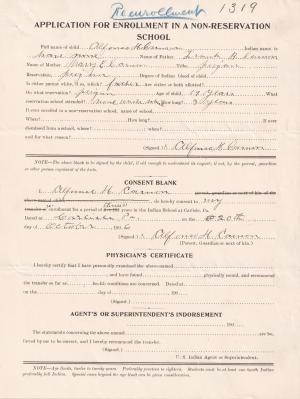 Reenrollment 1319
APPLICATION FOR ENROLLMENT IN A NON-RESERVATION
SCHOOL
Full name of child, Alfonso H. Carmon Indian name is
have none Name of Father, Frank H. Carmon
Name of Mother, Mary E. Carmon Tribe,
Reservation, Degree of Indian blood of child,
Is either parent white, if so, which? father Are either or both allotted?
On what reservation? Age? 17 years What
reservation school attended? How long? 3 years
If ever enrolled in a non-reservation school, name of school
How long? If ever
dismissed from a school, where? when?
and for what reason?
(Signed) Alfonso H. Carmon
NOTE.—The above blank to be signed by the child, if old enough to understand its import; if not, by the parent, guardian
or other person cognizant of the facts.
CONSENT BLANK
I, Alfonso H. Carmon parent, guardian or next of kin of the
do hereby consent to my
enrollment for a period of three years in the Indian School at Carlisle, Pa.
Dated at Carlisle Pa. the 20th
day of October 1916
(Signed) Alfonso H. Carmon
(Parent, Guardian or next of kin.)
PHYSICIAN'S CERTIFICATE
I hereby certify that I have personally examined the above-named
and have found physically sound, and recommend
the transfer as far as health conditions are concerned. Dated at
on the day of 190
(Signed)
AGENT'S OR SUPERINTENDENT'S INDORSEMENT
190
The statements concerning the above named are be-
lieved by me to be correct, and I hereby recommend the transfer.
(Signed)
U. S. Indian Agent or Superintendent.
NOTE.—Age limits, twelve to twenty years. Preferably fourteen to eighteen. Students must be at least one fourth Indian
preferably full Indian. Special cases beyond the age limit can be given consideration.